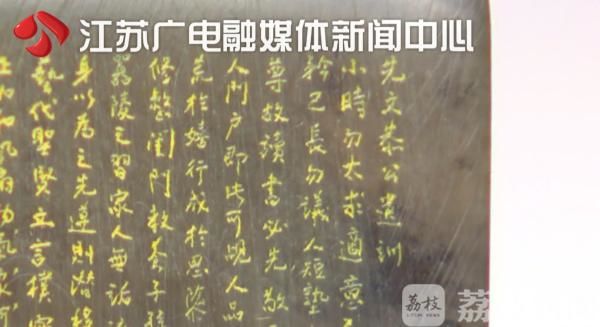 江苏广电融媒体新闻中心
先文恭公遺訓
小時勿太求適意
矜己長勿議人短
尊敬讀書必先敬
人門戶即此可覘人品
荒於嬉行成於思
修整閨門教養子
之習家人無詬
身以為之先遵則潛移
藝代聖賢立言樸實
荔枝
荔